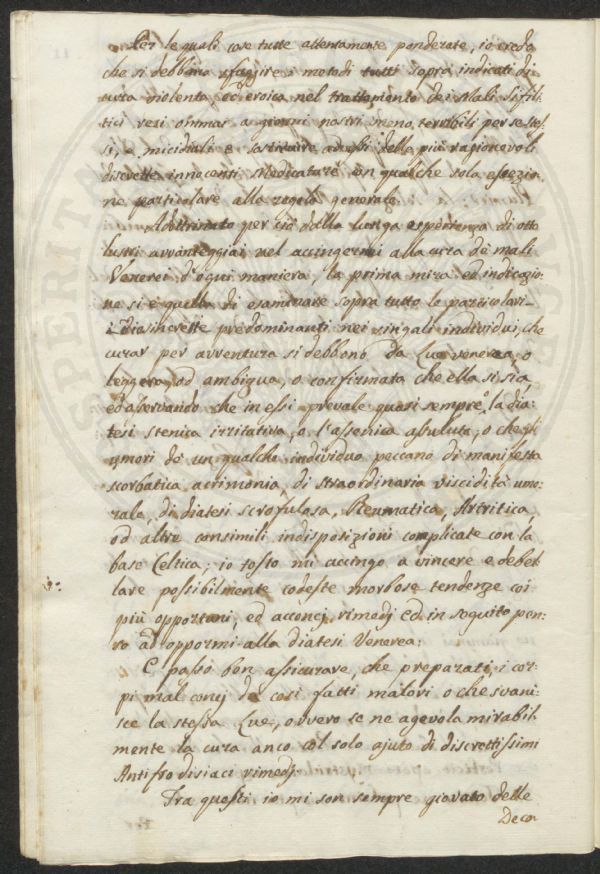 Per le quali cose tutte attentamente ponderate, io credo
che si debbano sfuggire i metodi tutti sopra indicati di
cura violenta, ed eroica nel trattamento dei Mali Sifili:
tici resi ommai a giorni nostri meno terribili per se stes:
si, e micidiali e sostituire ad essi delle più ragionevoli
discrette innocenti Medicature con qualche sola eccezio:
ne particolare alla regola generale.
Adottrinato per ciò dalla lunga esperienza di otto
lustri avvanteggiai nel accingermi alla cura de mali
Venerei d'ogni maniera, la prima mira ed indicazio:
ne si è quella di esaminare sopra tutto le particolari
Idiasincresie predominanti nei singoli individui, che
curar per avventura si debbono da Lue venerea, o
leggera, od ambigua, o confirmata che ella si sia,
ed osservando che in essi prevale quasi sempre o la dia:
tesi stenica irritativa, o l'astenica assoluta, o che gli
umori de un qualche individuo peccano di manifesta
scorbatica acrimonia, di straordinaria viscidità umo:
rale, di diatesi scrofulosa, Reumatica, Artritica,
od altre consimili indisposizioni complicate con la
base Celtica; io tosto mi accingo a vincere e debel:
lare possibilmente codeste morbose tendenze coi
più opportuni, ed acconcj rimedj ed in seguito pen:
so ad oppormi alla diatesi Venerea.
E posso ben assicurare, che preparati i cor:
pi mal concj da così fatti malori o che svani:
sce la stessa Lue, ovvero se ne agevola mirabil:
mente la cura anco col solo ajuto di discrettissimi
Antifrodisiaci rimedj.
Tra questi io mi son sempre giovato delle
Decoz